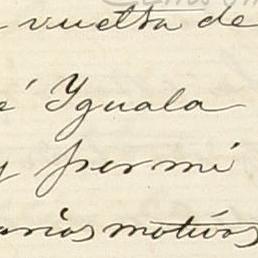 vuelta de
é Yguala
y permi
arios motivos